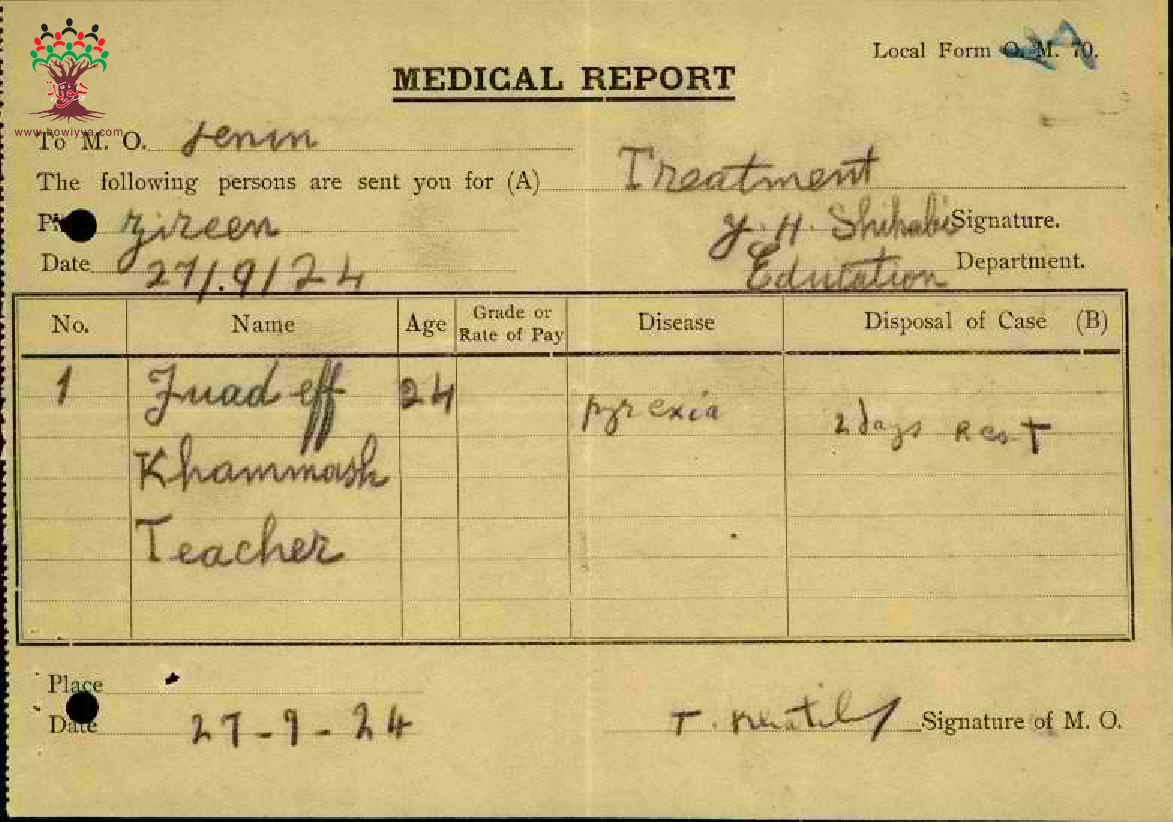 Local Form O. M. 70.
MEDICAL REPORT
www.howiyya.com
To M. O. Jenin
The following persons are sent you for (A) Treatment
Zireen Y. H. Shihabi Signature.
Date 27/.9/24 Education Department.
No. Name Age Grade or Rate of Pay Disease Disposal of Case (B)
1 Fuad eff 24 pyrexia 2 days Rest
Khammash
Teacher
Place
Date 27-9-24 T. Signature of M. O.